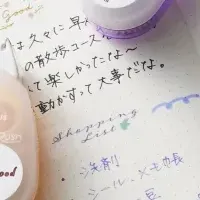 Good
は久々に早
の散歩コース
して楽しかったな〜
動かすって大事だな。
Shopping
List
・洗剤
・シール・メモ帳
ood